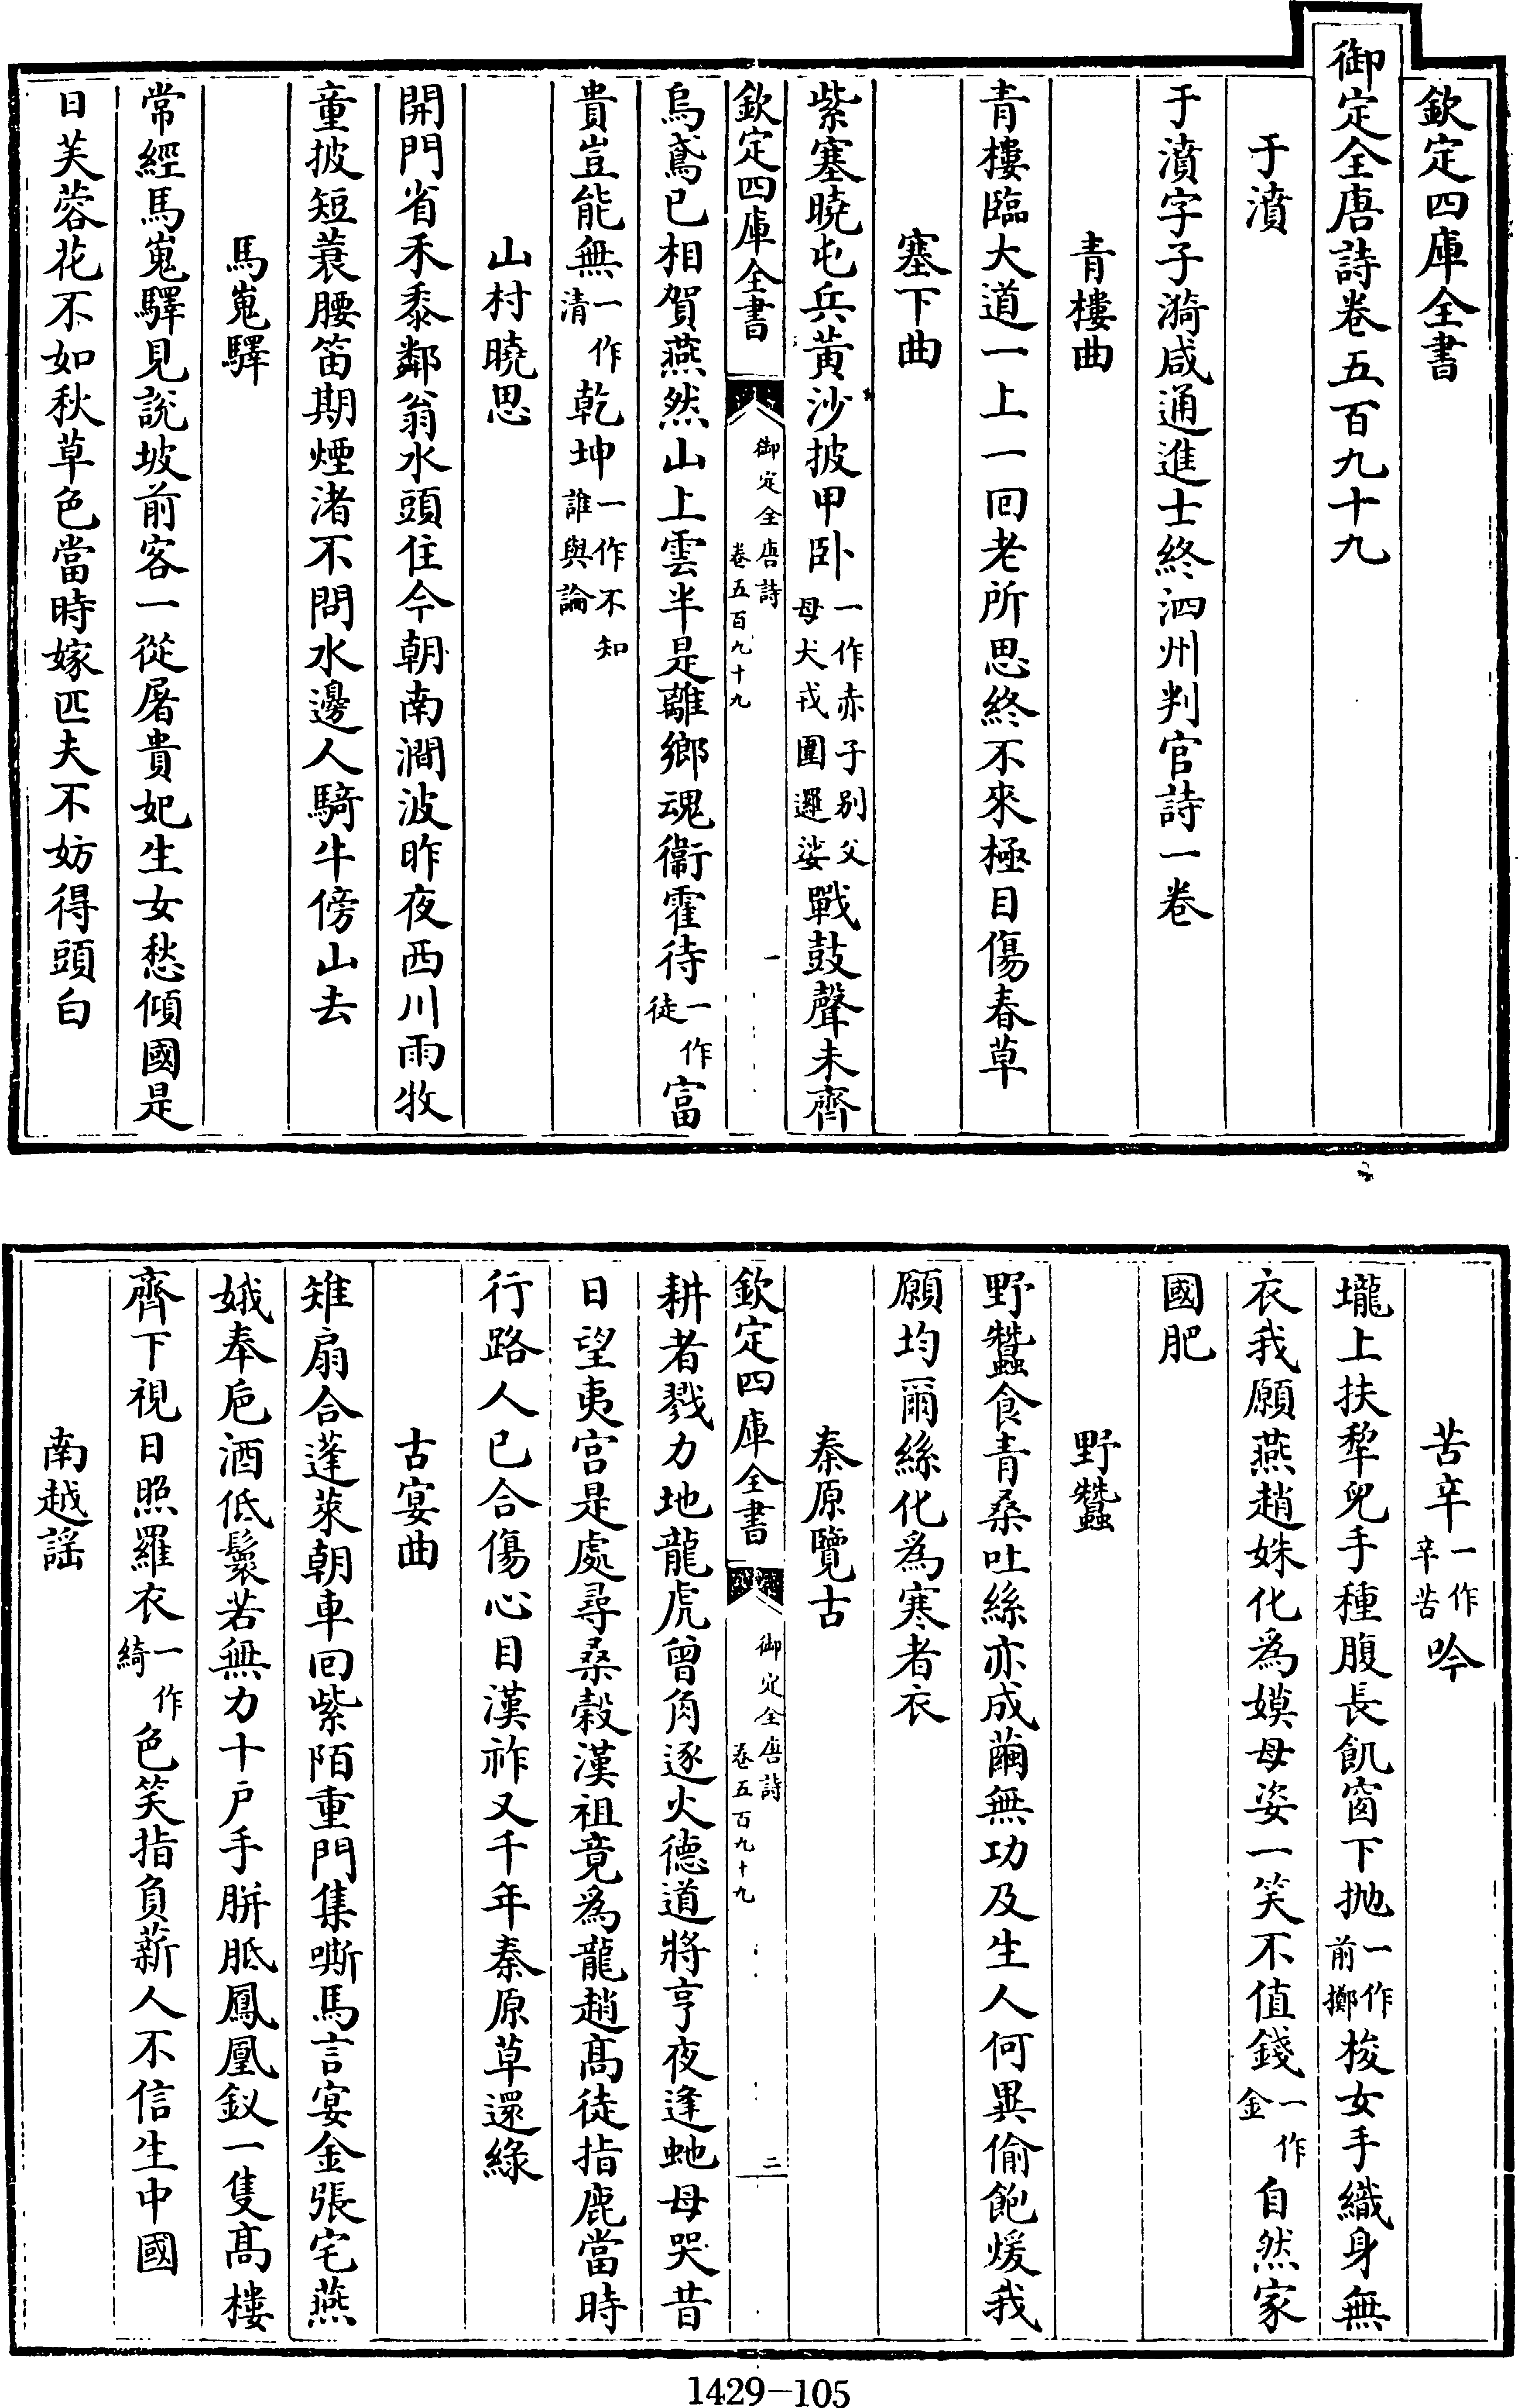 欽定四庫全書
御定全唐詩卷五百九十九
于濆
于濆字子漪咸通進士終泗州判官詩一卷
青樓曲
青樓臨大道一上一回老所思終不來極目傷春草
塞下曲
紫塞曉屯兵黃沙披甲卧一作赤子別父母犬戎圍邏娑戰鼓聲未齊
欽定四庫全書 御定全唐詩卷五百九十九 一
烏鳶已相賀燕然山上雲半是離鄉魂衞霍待一作徒富
貴豈能無一作清乾坤一作不知誰與論
山村曉思
開門省禾黍鄰翁水頭住今朝南澗波昨夜西川雨牧
童披短蓑腰笛期煙渚不問水邊人騎牛傍山去
馬嵬驛
常經馬嵬驛見說坡前客一從屠貴妃生女愁傾國是
日芙蓉花不如秋草色當時嫁匹夫不妨得頭白
苦辛一作辛苦吟
壠上扶犂兒手種腹長飢窗下拋一作前擲梭女手織身無
衣我願燕趙姝化為嫫母姿一笑不值錢一作金自然家
國肥
野蠶
野蠶食青桑吐絲亦成繭無功及生人何異偷飽煖我
願均爾絲化為寒者衣
秦原覽古
欽定四庫全書 御定全唐詩卷五百九十九 二
耕者戮力地龍虎曾角逐火德道將亨夜逢虵母哭昔
日望夷宮是處尋桑穀漢祖竟為龍趙高徒指鹿當時
行路人已合傷心目漢祚又千年秦原草還綠
古宴曲
雉扇合蓬萊朝車回紫陌重門集嘶馬言宴金張宅燕
娥奉巵酒低鬟若無力十戶手胼胝鳳凰釵一隻高樓
齊下視日照羅衣一作綺色笑指負薪人不信生中國
南越謠
1429—105